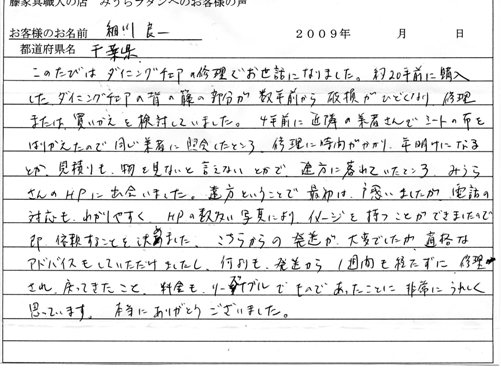 藤家具職人の店 みうらラタンへのお客様の声
お客様のお名前 細川 良一 2009年 月 日
都道府県名 千葉県
このたびはダイニングチェアの修理でお世話になりました。約20年前に購入
した ダイニングチェアの背の籐の部分が数年前から破損がひどくなり 修理
または 買いかえを検討していました。4年前に近隣の業者さんでシートの布を
はりかえたので同じ業者に照会したところ、修理に時間がかかり、年明けになる
とか、見積りも、物を見ないと言えないとかで、途方に暮れていたところ、みうら
さんのHPに出会いました。遠方ということで最初は、戸惑いましたが、電話の
対応も、わかりやすく、HPの数ない写真により、イメージを持つことができましたので
即 依頼することを決めました。こちらからの発送が、大変でしたが、適格な
アドバイスもしていただけましたし、何よりも、発送から1週間も経たずに修理
され、戻ってきたこと、料金も、リーズナブルでものであったことに非常にうれしく
思っています。 本当にありがとうございました。